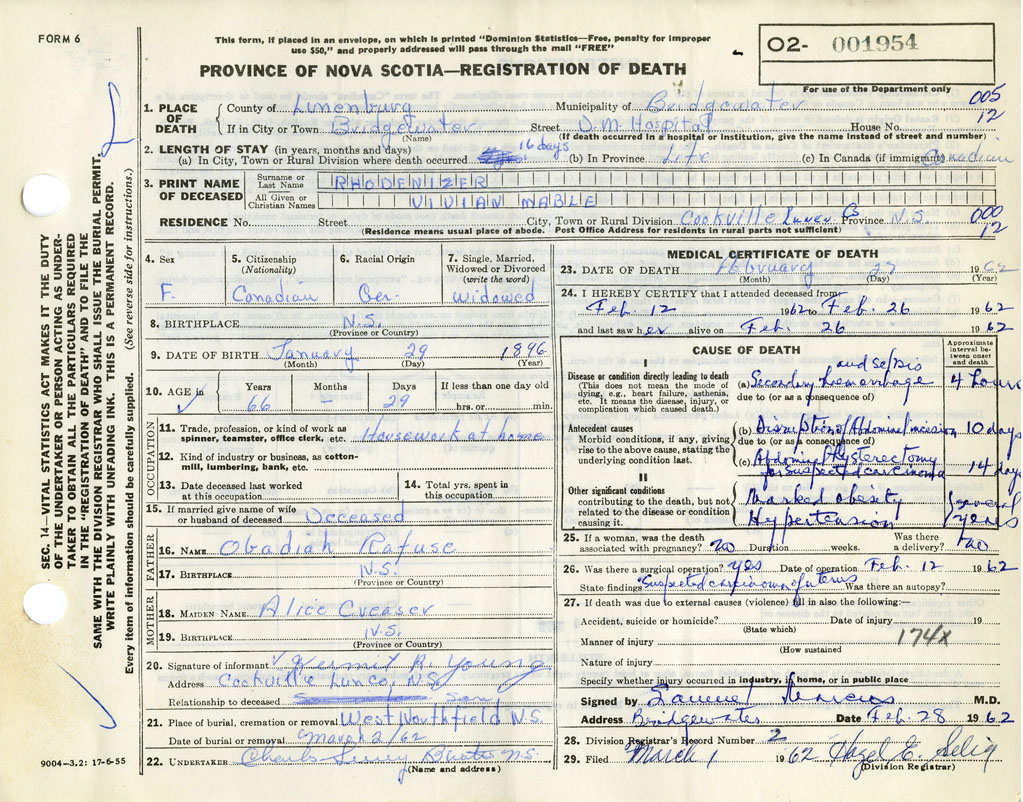 FORM 6
This form, if placed in an envelope, on which is printed "Dominion Statistics—Free, penalty for improper
use $50," and properly addressed will pass through the mail "FREE"
O2- 001954
For use of the Department only
PROVINCE OF NOVA SCOTIA—REGISTRATION OF DEATH
SEC. 14—VITAL STATISTICS ACT MAKES IT THE DUTY
OF THE UNDERTAKER OR PERSON ACTING AS UNDER-
TAKER TO OBTAIN ALL THE PARTICULARS REQUIRED
IN THE "REGISTRATION OF DEATH" AND TO FILE THE
SAME WITH THE DIVISION REGISTRAR WHO SHALL ISSUE THE BURIAL PERMIT.
WRITE PLAINLY WITH UNFADING INK. THIS IS A PERMANENT RECORD.
Every item of information should be carefully supplied. (See reverse side for instructions.)
1. PLACE OF DEATH
County of Lunenburg Municipality of Bridgewater 005
If in City or Town Bridgewater Street D.M. Hospital House No. 12
(Name) (If death occurred in a hospital or institution, give the name instead of street and number)
2. LENGTH OF STAY (in years, months and days)
(a) In City, Town or Rural Division where death occurred 16 days (b) In Province Life (c) In Canada (if immigrant) Canadian
3. PRINT NAME OF DECEASED
Surname or Last Name RHODENIZER
All Given or Christian Names VIVIAN MABLE
RESIDENCE No. Street City, Town or Rural Division Cookville Lunen Co Province N.S. 000
(Residence means usual place of abode. Post Office Address for residents in rural parts not sufficient) 12
4. Sex F.
5. Citizenship (Nationality) Canadian
6. Racial Origin Ger.
7. Single, Married, Widowed or Divorced (write the word) Widowed
8. BIRTHPLACE N.S.
(Province or Country)
9. DATE OF BIRTH January 29 1896
(Month) (Day) (Year)
10. AGE in ✓ Years 66 Months – Days 29 If less than one day old hrs. or min.
OCCUPATION
11. Trade, profession, or kind of work as spinner, teamster, office clerk, etc. Housework at home
12. Kind of industry or business, as cotton-mill, lumbering, bank, etc.
13. Date deceased last worked at this occupation
14. Total yrs. spent in this occupation
15. If married give name of wife or husband of deceased Deceased
FATHER
16. NAME Obadiah Rafuse
17. BIRTHPLACE N.S.
(Province or Country)
MOTHER
18. MAIDEN NAME Alice Creaser
19. BIRTHPLACE N.S.
(Province or Country)
20. Signature of informant Kermit R. Young
Address Cookville Lun Co. N.S.
Relationship to deceased Son
21. Place of burial, cremation or removal West Northfield N.S.
Date of burial or removal March 2/62
22. UNDERTAKER Charles N.S.
(Name and address)
9004—3.2: 17-6-55
MEDICAL CERTIFICATE OF DEATH
23. DATE OF DEATH February 27 1962
(Month) (Day) (Year)
24. I HEREBY CERTIFY that I attended deceased from
Feb. 12 1962 to Feb. 26 1962
and last saw her alive on Feb. 26 1962
CAUSE OF DEATH
Approximate interval between onset and death
I
Disease or condition directly leading to death
(This does not mean the mode of dying, e.g., heart failure, asthenia, etc. It means the disease, injury, or complication which caused death.)
(a) Secondary hemorrhage and sepsis 4 hours
due to (or as a consequence of)
Antecedent causes
Morbid conditions, if any, giving rise to the above cause, stating the underlying condition last.
(b) Disruption of Abdominal incision 10 days
due to (or as a consequence of)
(c) Abdominal Hysterectomy for suspected carcinoma 14 days
II
Other significant conditions
contributing to the death, but not related to the disease or condition causing it.
Marked obesity
Hypertension
several years
25. If a woman, was the death associated with pregnancy? no Duration weeks. Was there a delivery? no
26. Was there a surgical operation? yes Date of operation Feb. 12 1962
State findings Suspected carcinoma of uterus Was there an autopsy?
27. If death was due to external causes (violence) fill in also the following:—
Accident, suicide or homicide? Date of injury 19
(State which)
Manner of injury 174X
(How sustained)
Nature of injury
Specify whether injury occurred in industry, in home, or in public place
Signed by Samuel Marcus M.D.
Address Bridgewater Date Feb. 28 1962
28. Division Registrar's Record Number 2
29. Filed March 1 1962 Hazel E. Selig
(Division Registrar)